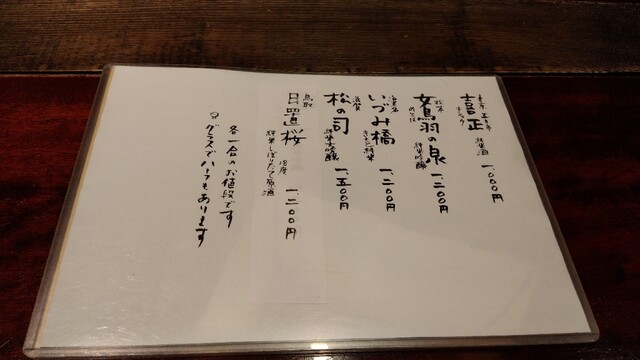 東京 五日市
喜正 純米酒 一、〇〇〇円
松本
女鳥羽の泉 純米吟醸 一、二〇〇円
めとば
海老名
いづみ橋 純米 一、二〇〇円
滋賀
松の司 純米大吟醸 一、五〇〇円
鳥取
日置桜 18度 一、二〇〇円
純米しぼりたて原酒
各一合のお値段です
グラスでハーフもあります